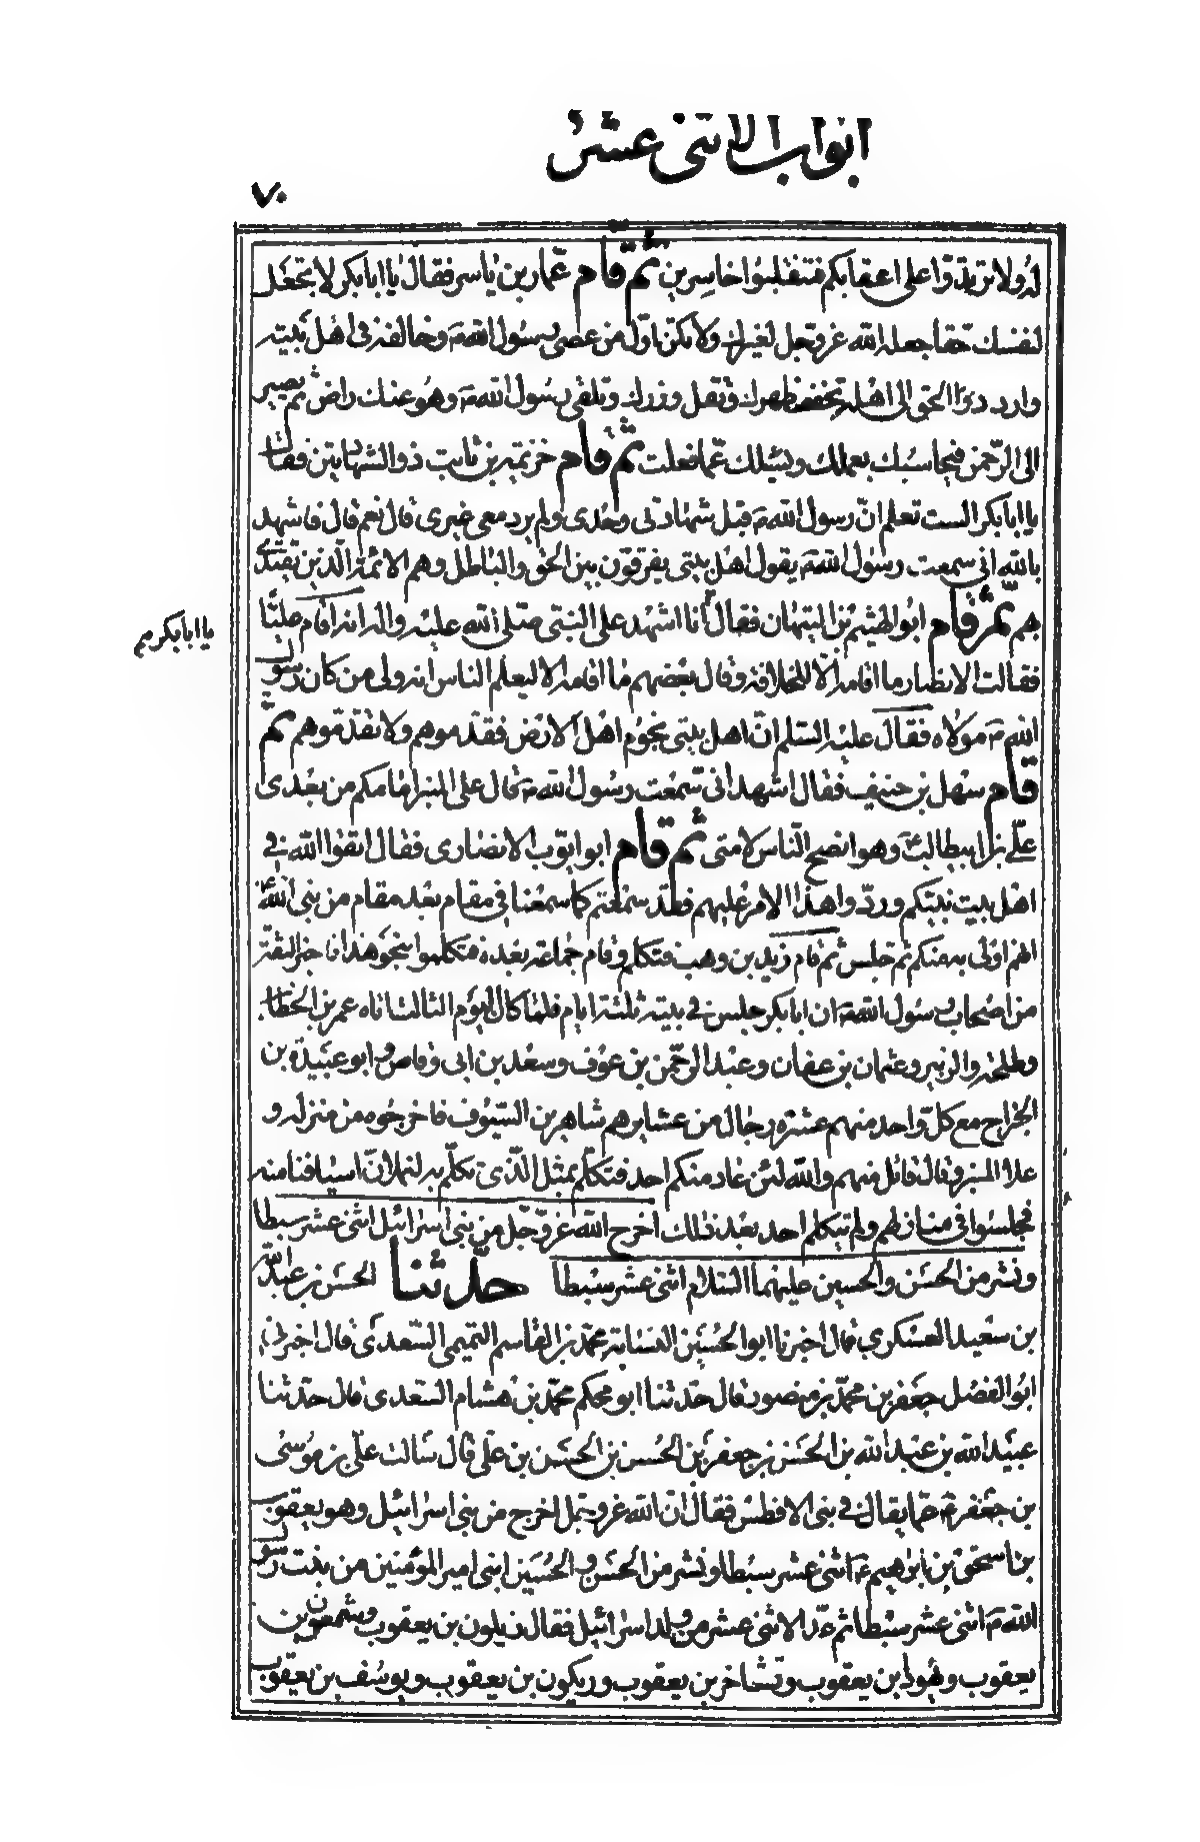 ابواب الاثنى عشر
٧٠
له ولا ترتدّوا على اعقابكم فتنقلبوا خاسرين ثمّ قام عمّار بن ياسر فقال يا ابابكر لا تجعل
لنفسك حقّا جعله الله عزّ وجل لغيرك ولا تكن اوّل من عصى رسول الله ص وخالفه فى اهل بيته
واردد الحق الى اهله تخفف ظهرك وتقل وزرك وتلقى رسول الله ص وهو عنك راض ثم تصير
الى الرّحمن فيحاسبك بعملك ويسئلك عمّا فعلت ثم قام خزيمة بن ثابت ذو الشهادتين فقال
يا ابابكر الست تعلم انّ رسول الله ص قبل شهادتى وحدى ولم يرد معى غيرى قال نعم قال فاشهد
بالله انى سمعت رسول الله ص يقول اهل بيتى يفرقون بين الحق والباطل وهم الائمّة الّذين يقتدى
بهم ثمّ قام ابو الهيثم بن التيهان فقال انا اشهد على النبىّ صلى الله عليه واله انه اقام عليّا
يا ابابكر
فقالت الانصار ما اقامه الّا للخلافة وقال بعضهم ما اقامه الا ليعلم الناس انه ولى من كان رسول
الله ص مولاه فقال عليه السلم انّ اهل بيتى نجوم اهل الارض فقدموهم ولا تقدّموهم ثمّ
قام سهل بن حنيف فقال اشهد انى سمعت رسول الله ص قال على المنبر امامكم من بعدى
علّى بن ابيطالب ع وهو انصح الناس لامتى ثم قام ابو ايّوب الانصارى فقال اتقوا الله فى
اهل بيت نبيّكم وردّوا هذا الامر عليهم فقد سمعتم كما سمعنا فى مقام بعد مقام من نبى الله
انهم اولى به منكم ثم جلس ثم قام زيد بن وهب فتكلم وقام جماعة بعده فتكلموا بنحو هذا فاخبر الثقة
من اصحاب رسول الله ص ان ابابكر جلس فى بيته ثلثة ايام فلما كان اليوم الثالث اتاه عمر بن الخطاب
وطلحة والزبير وعثمان بن عفان وعبد الرحّمن بن عوف وسعد بن ابى وقاص وابو عبيدة بن
الجراح مع كلّ واحد منهم عشرة رجال من عشايرهم شاهرين السيوف فاخرجوه من منزله و
علا المنبر وقال قائل منهم والله لئن عاد منكم احد فتكلّم بمثل الّذى تكلّم به لنملانّ اسيافنا منه
فجلسوا فى منازلهم ولم يتكلم احد بعد ذلك اخرج الله عزّ وجّل من بنى اسرائيل اثنى عشر سبطا
ونشر من الحسن والحسين عليهما السلام اثنى عشر سبطا حدّثنا الحسن بن عبد الله
بن سعيد العسكرى قال اخبرنا ابو الحسين النسابة محمّد بن القاسم التميمى السّعدى قال اخبرنى
ابو الفضل جعفر بن محمّد بن منصور قال حدّثنا ابو محكم محمّد بن هشام السّعدى قال حدّثنا
عبيد الله بن عبد الله بن الحسن بن جعفر بن الحسن بن الحسن بن علّى قال سالت علّى بن موسى
بن جعفر ع عمّا يقال فى بنى الافطس فقال انّ الله عزّ وجل اخرج من بنى اسرائيل وهو يعقوب
بن اسحق بن ابرهيم ع اثنى عشر سبطا ونشر من الحسن والحسين ابنى امير المؤمنين من بنت رسول
الله ص اثنى عشر سبطا ثم عدّ الاثنى عشر من ولد اسرائيل فقال زيلون بن يعقوب وشمعون بن
يعقوب ويهودا بن يعقوب وتشاخر بن يعقوب وريكون بن يعقوب ويوسف بن يعقوب